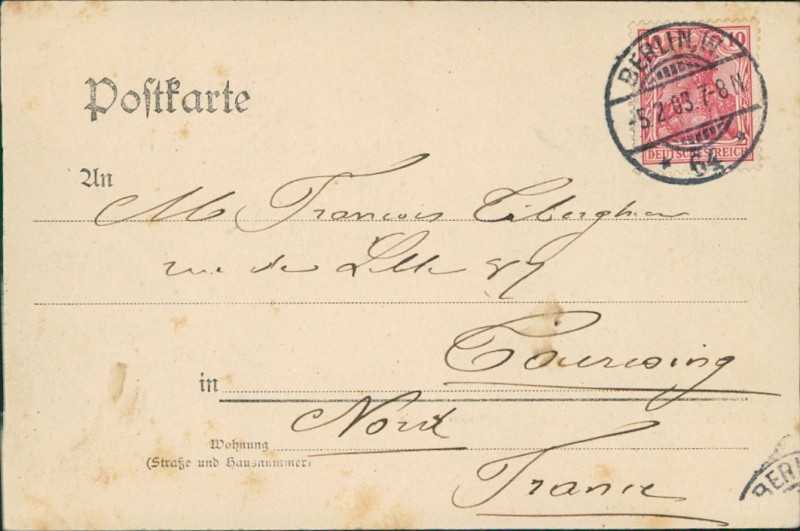 Postkarte
10
BERLIN. W
-5.2.03.7-8N.
* 64 *
DEUTSCHES REICH
An
M Francois Tiberghien
rue de Lille 87
Tourcoing
in
Nord
Wohnung
(Straße und Hausnummer)
France
BERL